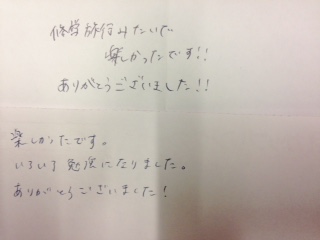 修学旅行みたいで
楽しかったです!!
ありがとうございました!!
楽しかったです。
いろいろ勉強になりました。
ありがとうございました!